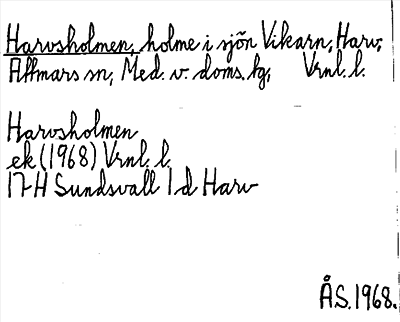 Harvsholmen, holme i sjön Vikarn, Harv,
Attmars sn, Med. v. doms. tg, Vrnl. l.
Harvsholmen
ek (1968) Vrnl. l.
17H Sundsvall 1 d Harv
ÅS. 1968.